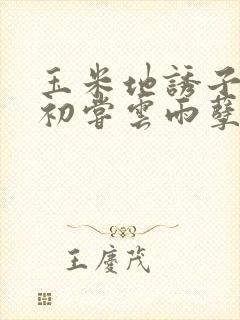 玉米地誘子
初嘗雲雨孽
王慶茂